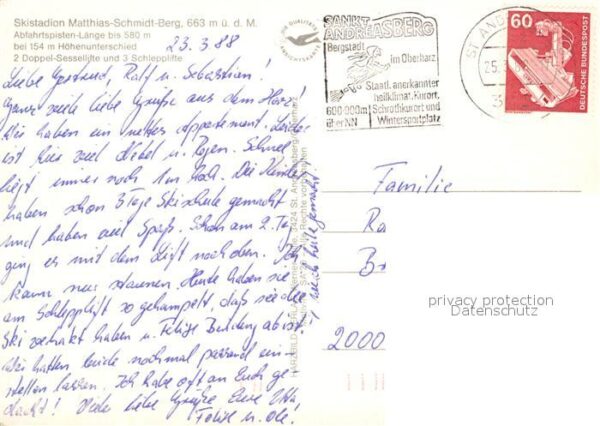 Skistadion Matthias-Schmidt-Berg, 663 m ü. d. M.
Abfahrtspisten-Länge bis 580 m
bei 154 m Höhenunterschied
2 Doppel-Sessellifte und 3 Schlepplifte
23.3.88
Liebe Gertrud, Ralf u. Sebastian!
Ganz viele liebe Grüße aus dem Harz!
Wir haben ein nettes Appartement. Leider
ist hier viel Nebel u. Regen. Schnee
liegt immer noch 1m hoch. Die Kinder
haben schon 5 Tage Skischule gemacht
und haben viel Spaß. Schon am 2. Tag
ging es mit dem Lift nach oben. Ich
kann nur staunen. Heute haben sie
am Schlepplift so gehampelt, daß sie die
Ski verhakt haben u. Felix Bindung ab ist.
Wir hatten beide nochmal passend ein-
stellen lassen. Ich habe oft an Euch ge-
dacht! Viele liebe Grüße Eure
Felix u. Ole!
SANKT
ANDREASBERG
Bergstadt
im Oberharz
Staatl. anerkannter
heilklimat. Kurort,
Schrothkurort und
Wintersportplatz
600-900m
über NN
ST AND
25.
60
DEUTSCHE BUNDESPOST
Familie
Ra
Br
2000
privacy protection
Datenschutz